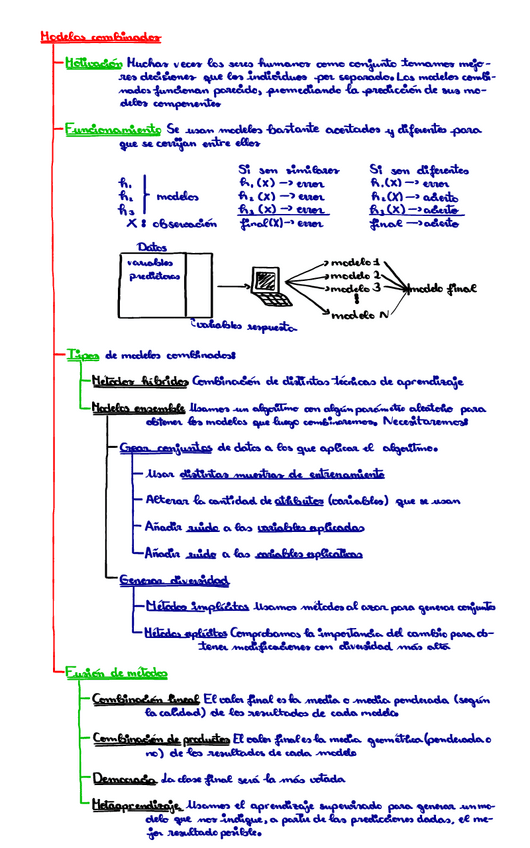 Modelos combinados
Motivación Muchas veces los seres humanos como conjunto tomamos mejo-
res decisiones que los individuos por separado. Los modelos combi-
nados funcionan parecido, promediando la predicción de sus mo-
delos componentes
Funcionamiento Se usan modelos bastante acertados y diferentes para
que se corrijan entre ellos
Si son similares Si son diferentes
h₁ h₁(X) → error h₁(X) → error
h₂ modelos h₂(X) → error h₂(X) → acierto
h₃ h₃(X) → error h₃(X) → acierto
X: observación final(X) → error final → acierto
Datos
variables
predictoras
modelo 1
modelo 2
modelo 3
modelo N
modelo final
variables respuesta
Tipos de modelos combinados:
Métodos híbridos Combinación de distintas técnicas de aprendizaje
Modelos ensemble Usamos un algoritmo con algún parámetro aleatorio para
obtener los modelos que luego combinaremos. Necesitaremos:
Crear conjuntos de datos a los que aplicar el algoritmo.
Usar distintas muestras de entrenamiento
Alterar la cantidad de atributos (variables) que se usan
Añadir ruido a las variables explicadas
Añadir ruido a las variables explicativas
Generar diversidad
Métodos implícitos Usamos métodos al azar para generar conjunto
Métodos explícitos Comprobamos la importancia del cambio para ob-
tener modificaciones con diversidad más alta
Fusión de métodos
Combinación lineal El valor final es la media o media ponderada (según
la calidad) de los resultados de cada modelo
Combinación de productos El valor final es la media geométrica (ponderada o
no) de los resultados de cada modelo
Democracia La clase final será la más votada
Metaaprendizaje Usamos el aprendizaje supervisado para generar un mo-
delo que nos indique, a partir de las predicciones dadas, el me-
jor resultado posible.